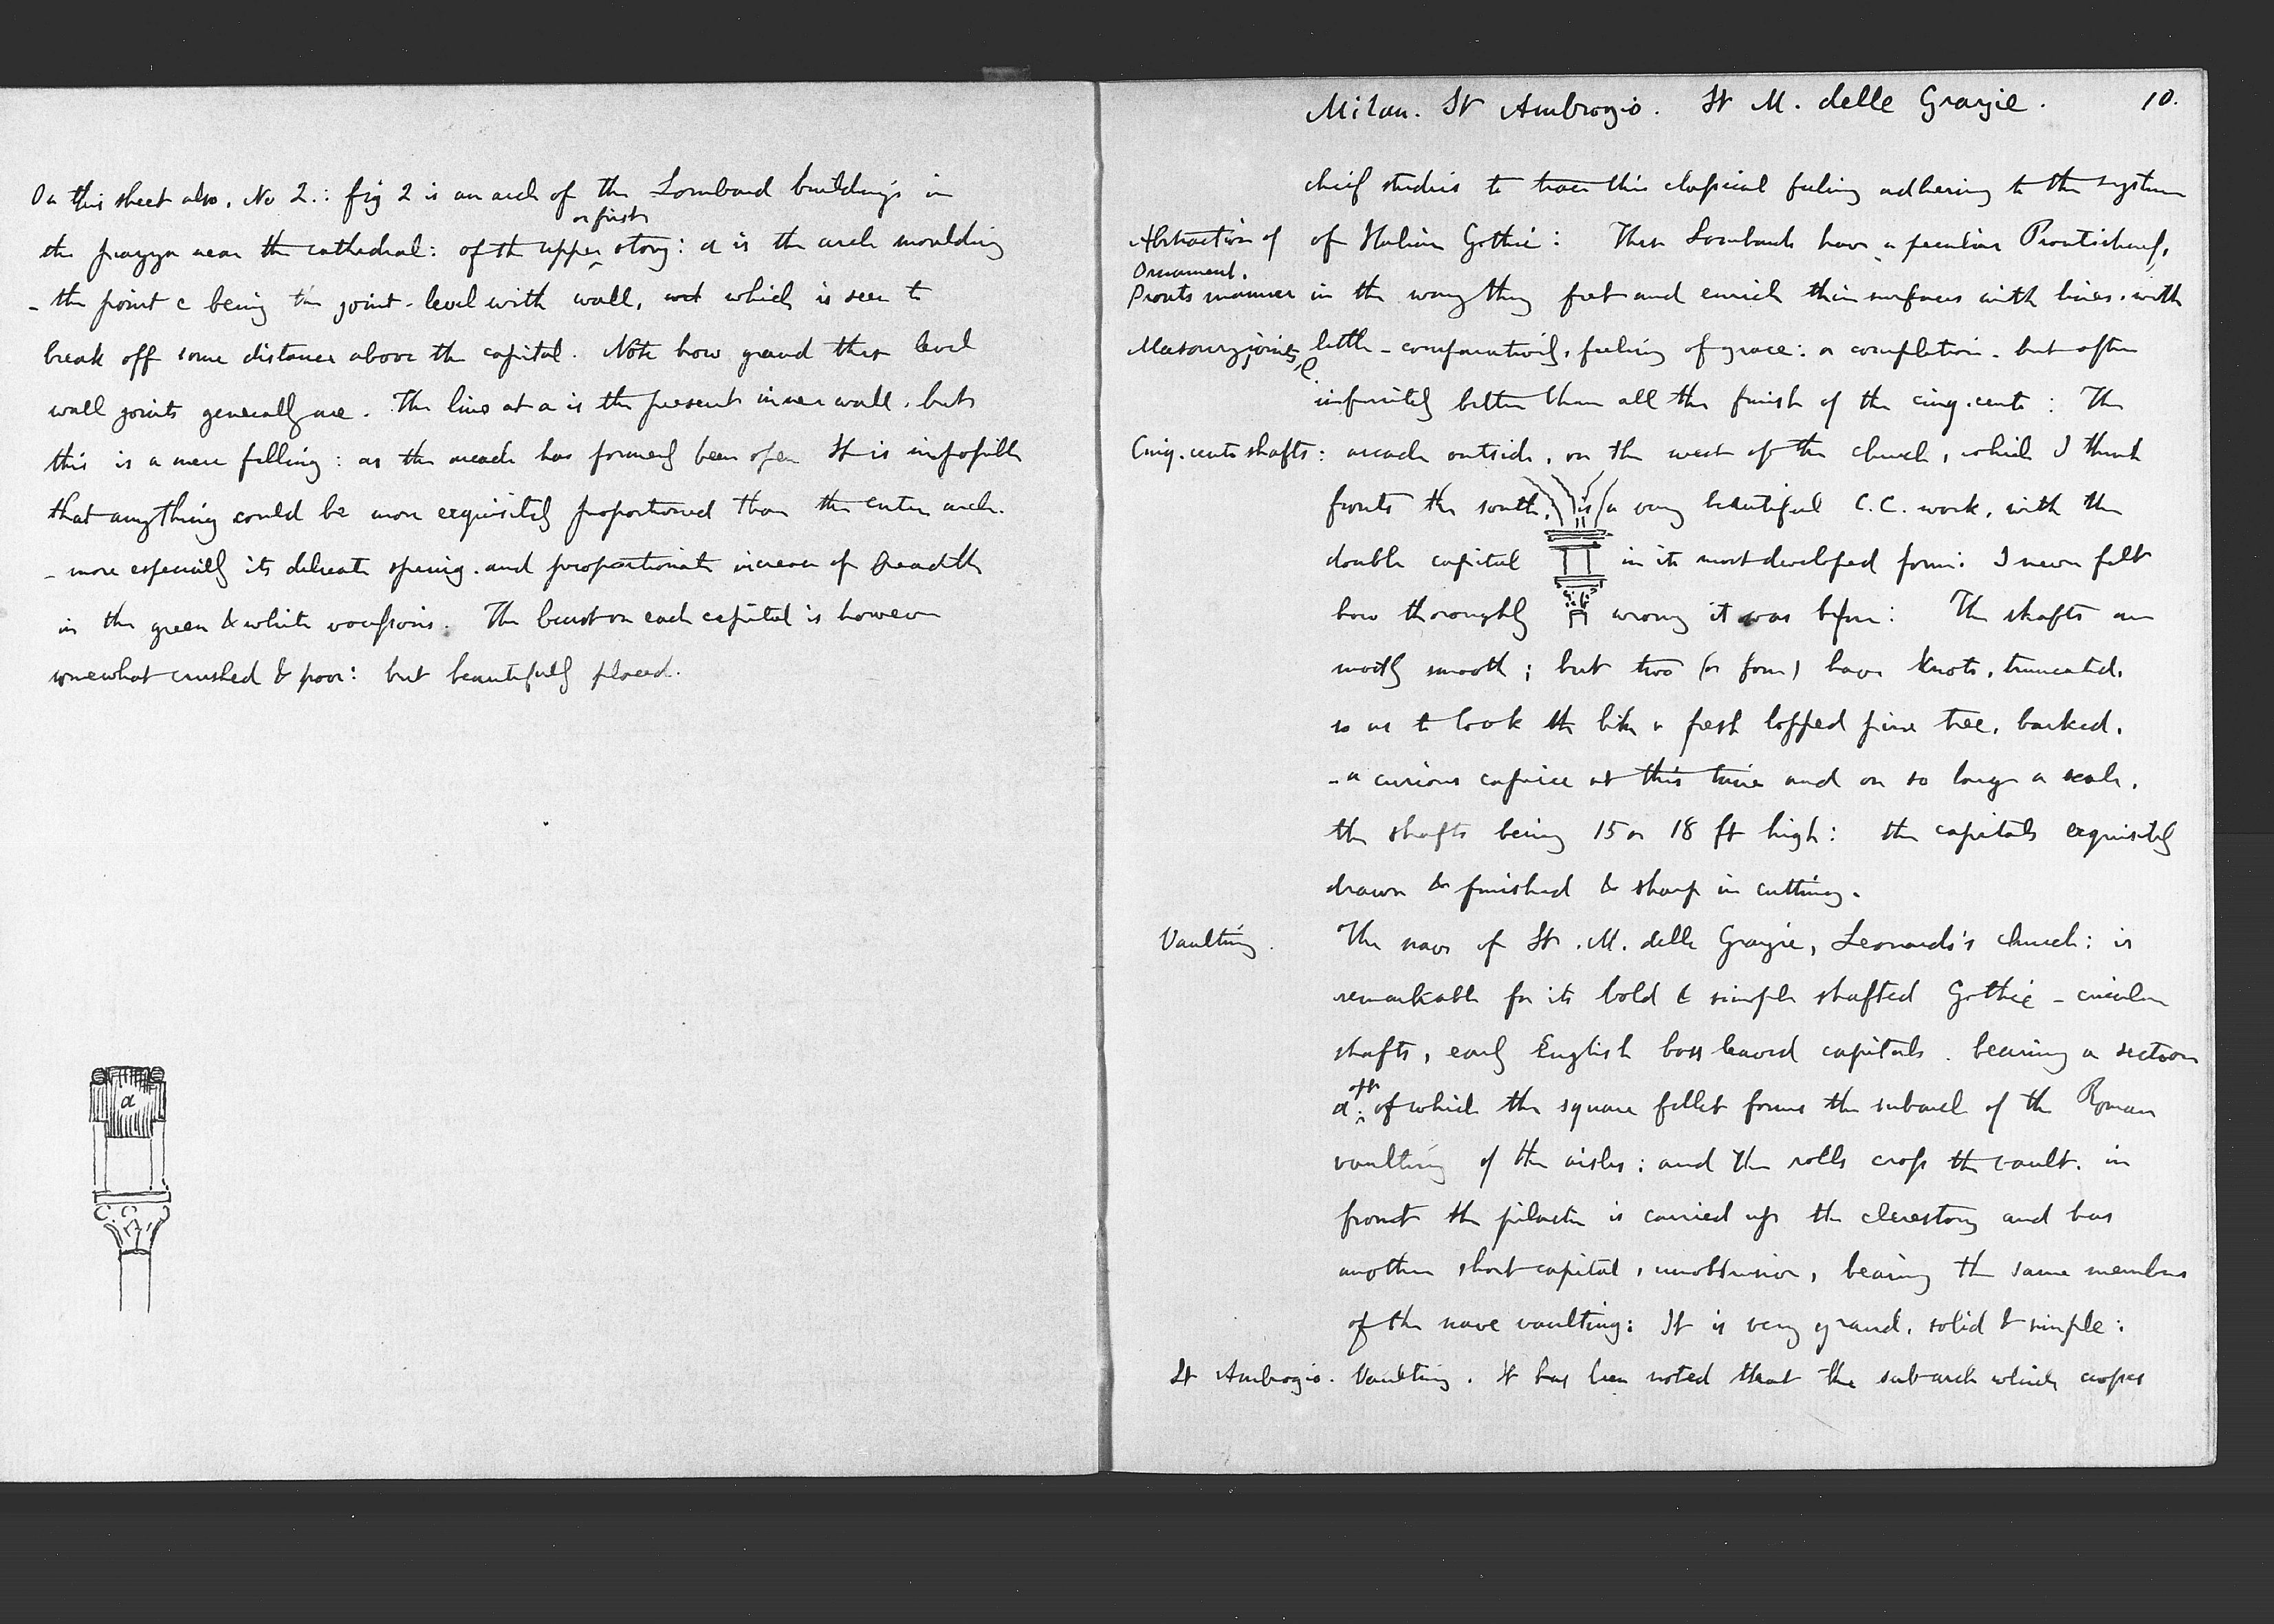 On this sheet also, No 2.: fig 2 is an arch of the Lombard buildings in
or first
the piazza near the cathedral: of the upper story: a is the arch moulding
- the point c being the joint - level with wall, and which is seen to
break off some distance above the capital. Note how grand these level
wall joints generally are. The line at a is the present inner wall, but
this is a mere filling: as the arcade has formerly been open It is impossible
that anything could be more exquisitely proportioned than the entire arch.
- more especially its delicate spring. and proportionate increase of breadth
in the green & white voussoirs. The beast on each capital is however
somewhat crushed & poor: but beautifully placed.
a
Milan. St Ambrogio. St M. delle Grazie. 10.
chief studies to trace this classical feeling adhering to the system
Abstraction of of Italian Gothic: These Lombards have a peculiar Proutishness,
Ornament.
Prouts manner in the way they fret and enrich their surfaces with lines. with
Masonry joints, little - comparatively, feeling of grace: or completion. but often
infinitely better than all the finish of the cinq. cento: The
Cinq. cento shafts: arcade outside, on the west of the church, which I think
fronts the south, is a very beautiful C.C. work, with the
double capital in its most developed form: I never felt
how thoroughly wrong it was before: The shafts are
mostly smooth; but two (or four) have knots, truncated,
so as to look the like a fresh lopped pine tree, barked.
- a curious caprice at this time and on so large a scale,
the shafts being 15 or 18 ft high: the capitals exquisitely
drawn & finished & sharp in cutting.
Vaulting. The nave of St. M. delle Grazie, Leonardo's church: is
remarkable for its bold & simple shafted Gothic - circular
shafts, early English boss leaved capitals. bearing a section
opp
a: of which the square fillet forms the subarch of the Roman
vaulting of the aisles: and the rolls cross the vault. in
front the pilaster is carried up the clerestory and has
another short capital, unobtrusive, bearing the same members
of the nave vaulting: It is very grand, solid & simple:
St Ambrogio. Vaulting. It has been noted that the subarch which crosses